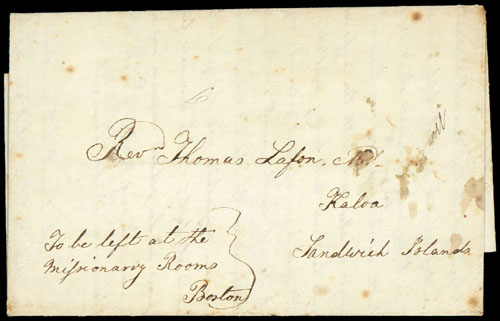 Revd Thomas Lafon, M.D.
Kaloa
Sandwich Islands
To be left at the
Missionary Rooms
Boston